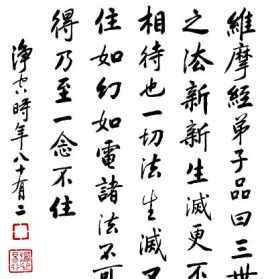 維摩經弟子品曰三世
之法新新生滅更不
相待也一切法生滅不
住如幻如電諸法不可
得乃至一念不住
淨空時年八十有二